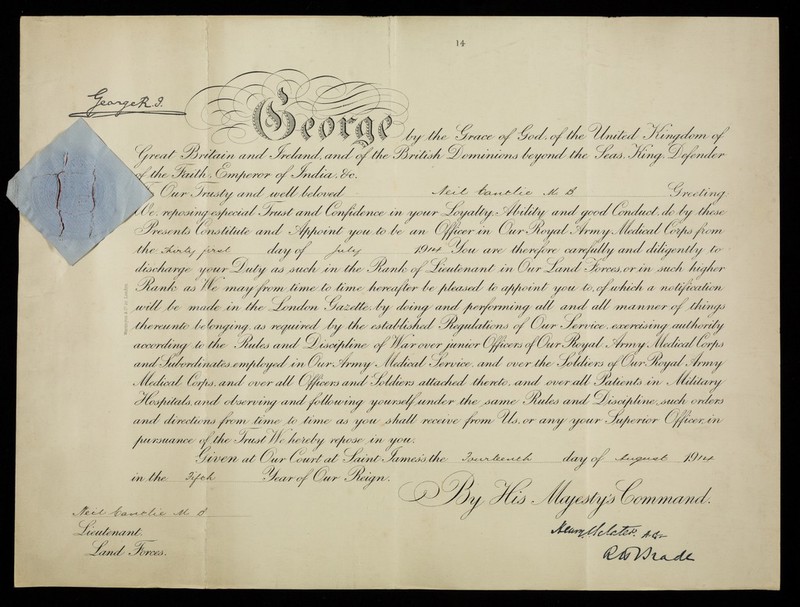 14
George R.I.
George by the Grace of God, of the United Kingdom of
Great Britain and Ireland, and of the British Dominions beyond the Seas, King, Defender
of the Faith, Emperor of India, &c.
Our Trusty and well beloved Neil Cantlie M. B Greeting
We, reposing especial Trust and Confidence in your Loyalty, Ability and good Conduct, do by these
Presents Constitute and Appoint you to be an Officer in Our Royal Army Medical Corps from
the thirty first day of July 1914 You are therefore carefully and diligently to
discharge your Duty as such in the Rank of Lieutenant in Our Land Forces, or in such higher
Rank as We may from time to time hereafter be pleased to appoint you to, of which a notification
will be made in the London Gazette, by doing and performing all and all manner of things
thereunto belonging, as required by the established Regulations of Our Service, exercising authority
according to the Rules and Discipline of War over junior Officers of Our Royal Army Medical Corps
and Subordinates employed in Our Army Medical Service, and over the Soldiers of Our Royal Army
Medical Corps, and over all Officers and Soldiers attached thereto, and over all Patients in Military
Hospitals, and observing and following yourself under the same Rules and Discipline, such orders
and directions from time to time as you shall receive from Us, or any your Superior Officer, in
pursuance of the Trust We hereby repose in you.
Given at Our Court at Saint James's the Fourteenth day of August 1914
in the Fifth Year of Our Reign.
By His Majesty's Command.
Neil Cantlie M. B
Lieutenant,
Land Forces.
R W Brade